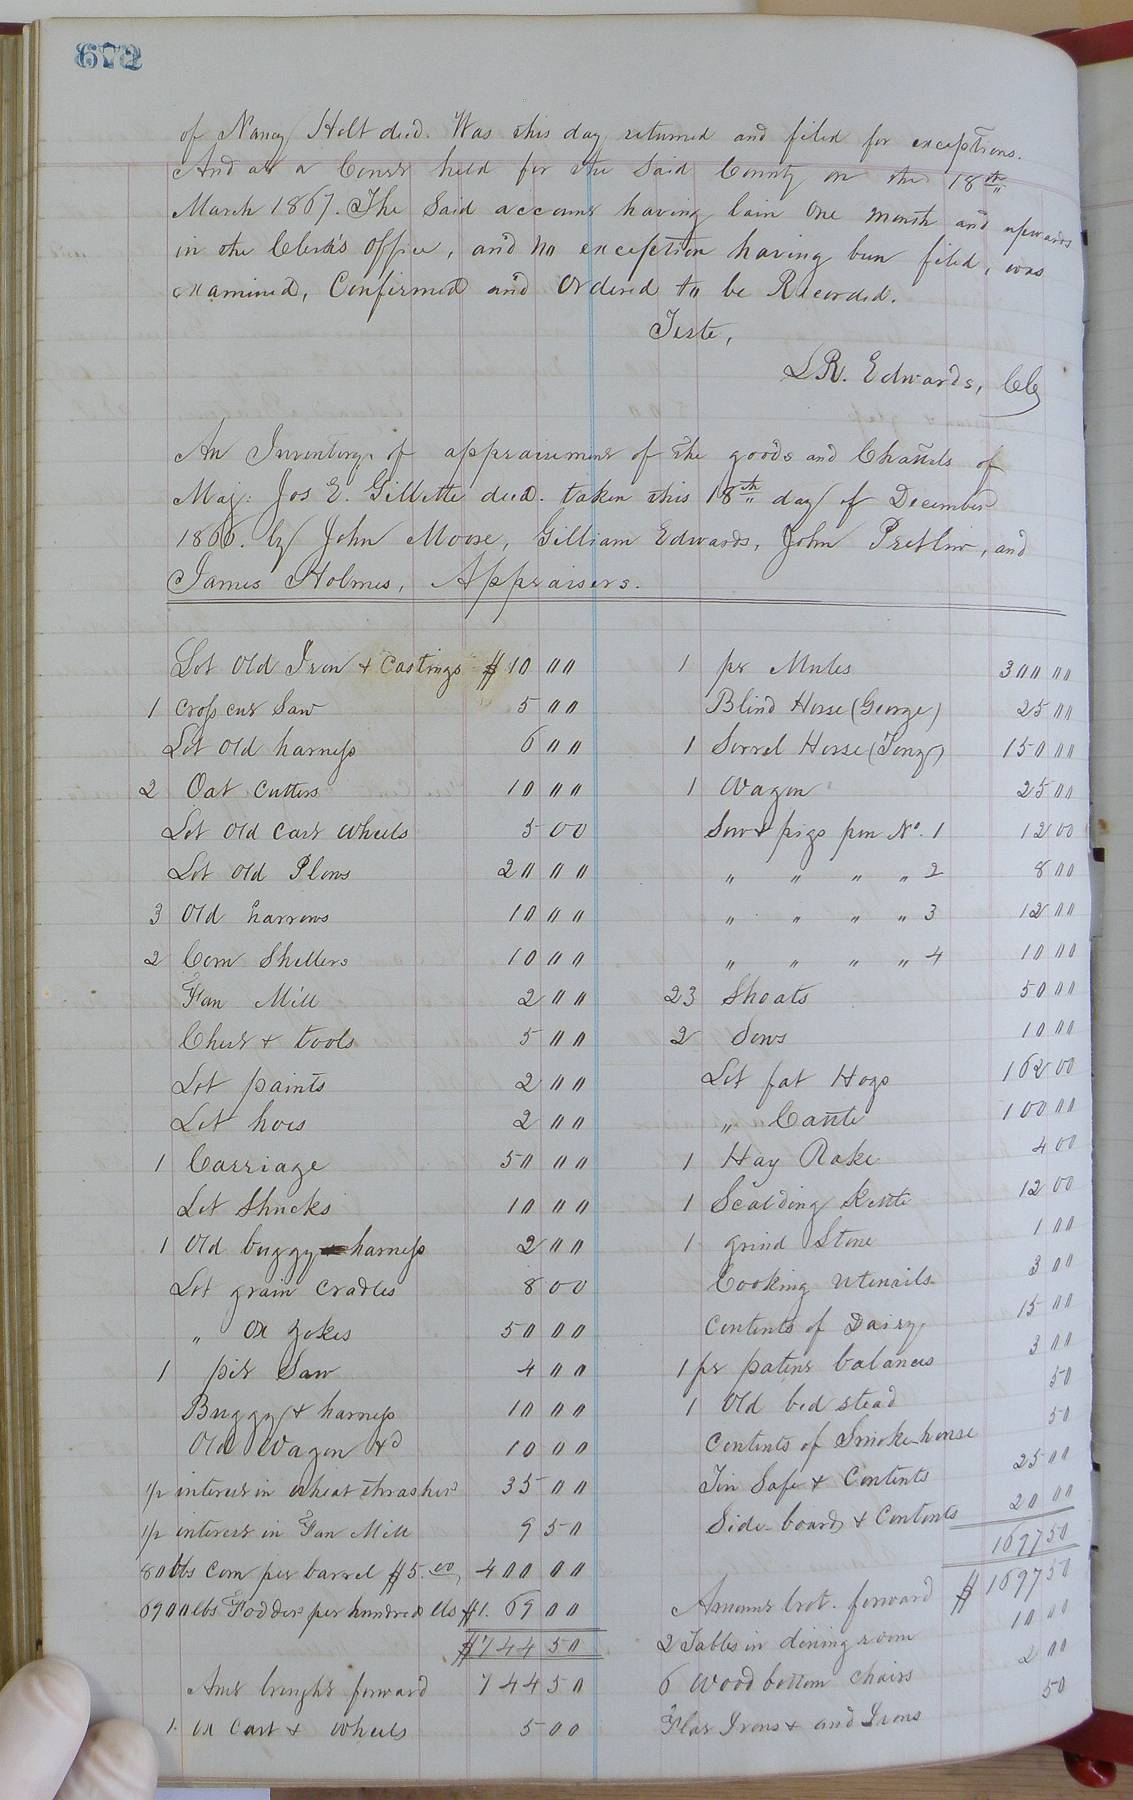 672
of Nancy Holt decd. Was this day returned and filed for exceptions.
And at a Court held for the Said County on the 18th
March 1867. The Said account having lain One month and upwards
in the Clerk's Office, and no exception having been filed, was
examined, Confirmed and Ordered to be Recorded.
Teste,
L R. Edwards, CC
An Inventory of appraisement of the goods and Chattels of
Maj: Jos E. Gillette decd. taken this 18th day of December
1866. by John Moore, Gilliam Edwards, John Pretlow, and
James Holmes, Appraisers.
Lot Old Iron & Castings $10 00
1 Cross cut Saw 5 00
Lot Old harness 6 00
2 Oat Cutters 10 00
Lot Old Cart Wheels 5 00
Lot Old Plows 20 00
3 Old harrows 10 00
2 Corn Shellers 10 00
Fan Mill 2 00
Chest & tools 5 00
Lot paints 2 00
Lot hoes 2 00
1 Carriage 50 00
Lot Shucks 10 00
1 Old buggy harness 2 00
Lot grain Cradles 8 00
" Ox yokes 50 00
1 pit Saw 4 00
Buggy & harness 10 00
Old Wagon &c 10 00
1/2 interest in wheat thrasher 35 00
1/2 interest in Fan Mill 9 50
80 bbs Corn per barrel $5.00, 400 00
6900 lbs Fodder per hundred lbs $1. 69 00
$744 50
Amt brought forward 744 50
1 Ox Cart & Wheels 5 00
1 pr Mules 300 00
Blind Horse (George) 25 00
1 Sorrel Horse (Tony) 150 00
1 Wagon 25 00
Sow & pigs pen No. 1 12 00
" " " " 2 8 00
" " " " 3 12 00
" " " " 4 10 00
23 Shoats 50 00
2 Sows 10 00
Lot fat Hogs 162 00
" Cattle 100 00
1 Hay Rake 4 00
1 Scalding Kettle 12 00
1 grind Stone 1 00
Cooking Utensils 3 00
Contents of Dairy 15 00
1 pr patent balances 3 00
1 Old bed stead 50
Contents of Smoke-house 50
Tin Safe & Contents 25 00
Side-board & Contents 20 00
1697 50
Amount brot. forward $1697 50
2 Tables in dining room 10 00
6 Wood bottom Chairs 2 00
Flat Irons & and Irons 50